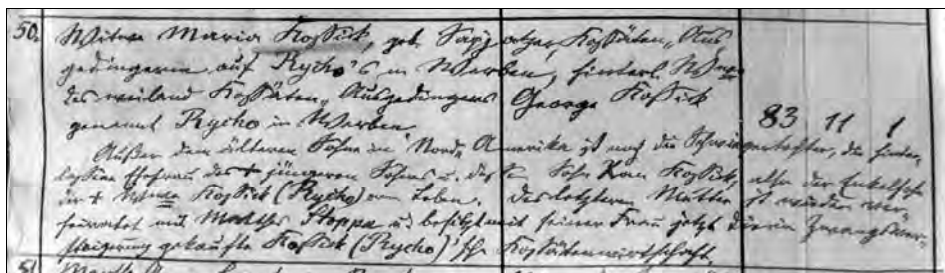 50. Witwe Maria Kossick, geb. Kossäten, Aus
gedingerin auf Rycho's in Werben, hinterl. Wwe
des weiland Kossäten, Ausgedingers George Kossick
genannt Rycho in Werben. 83 11 1
Außer dem älteren Sohne in Nord-Amerika ist noch die Schwiegertochter, die hinter-
lassene Ehefrau des † jüngeren Sohnes u. des Sohn Kossick, also der Enkelsohn
der † Wwe Kossick (Rycho) am Leben. Des letzteren Mutter ist wieder ver-
heiratet mit Matthes Stoppa u. besitzt mit seiner Frau jetzt die in Zwangsver-
steigerung gekaufte Kossick (Rycho)'sche Kossätenwirtschaft.
51